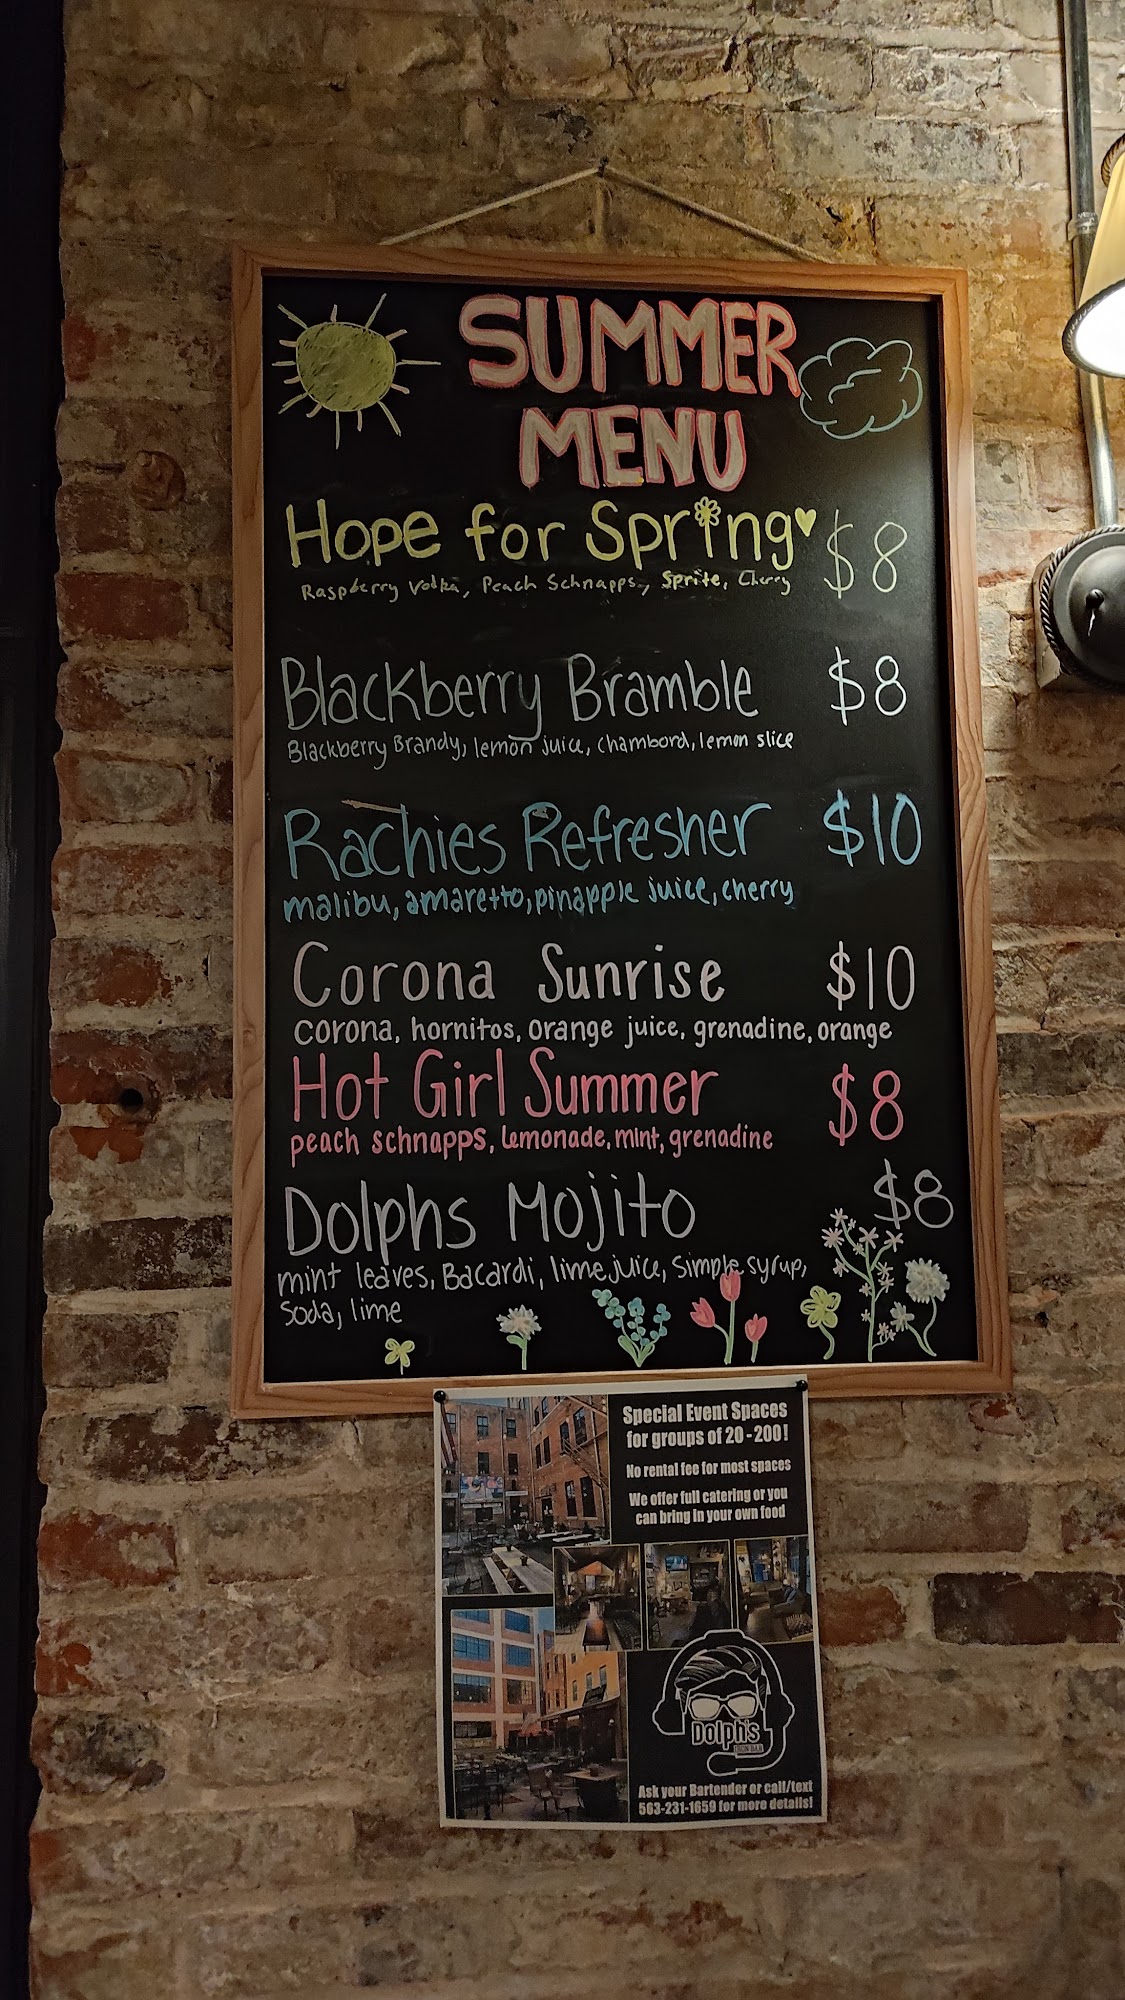 SUMMER
MENU
Hope for Spring $8
Raspberry Vodka, Peach Schnapps, Sprite, Cherry
Blackberry Bramble $8
Blackberry Brandy, lemon juice, chambord, lemon slice
Rachies Refresher $10
malibu, amaretto, pinapple juice, cherry
Corona Sunrise $10
corona, hornitos, orange juice, grenadine, orange
Hot Girl Summer $8
peach schnapps, lemonade, mint, grenadine
Dolphs Mojito $8
mint leaves, Bacardi, lime juice, simple syrup,
soda, lime
Special Event Spaces
for groups of 20-200!
No rental fee for most spaces
We offer full catering or you
can bring in your own food
Dolph's
Ask your Bartender or call/text
563-231-1659 for more details!